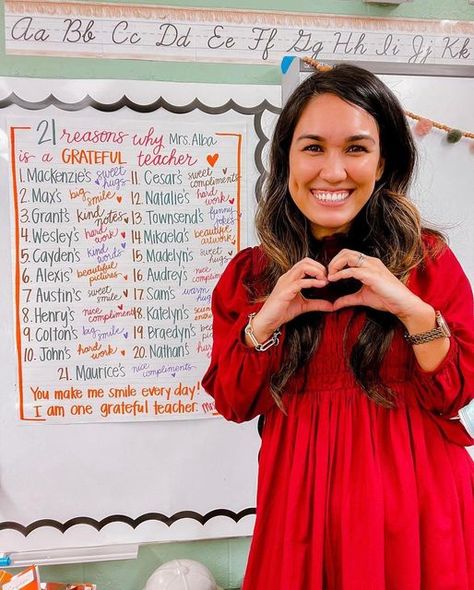 Aa Bb Cc Dd Ee Ff Gg Hh Ii Jj Kk
21 reasons why Mrs. Alba
is a GRATEFUL teacher
1. Mackenzie's sweet hugs
2. Max's big smile
3. Grant's kind notes
4. Wesley's hard work
5. Cayden's kind words
6. Alexis' beautiful pictures
7. Austin's sweet smile
8. Henry's nice compliments
9. Colton's big smile
10. John's hard work
11. Cesar's sweet compliments
12. Natalie's hard work
13. Townsend's funny jokes
14. Mikaela's beautiful artwork
15. Madelyn's sweet hugs
16. Audrey's nice
17. Sam's warm hugs
18. Katelyn's
19. Braedyn's
20. Nathan's
21. Maurice's nice compliments
You make me smile every day!
I am one grateful teacher.